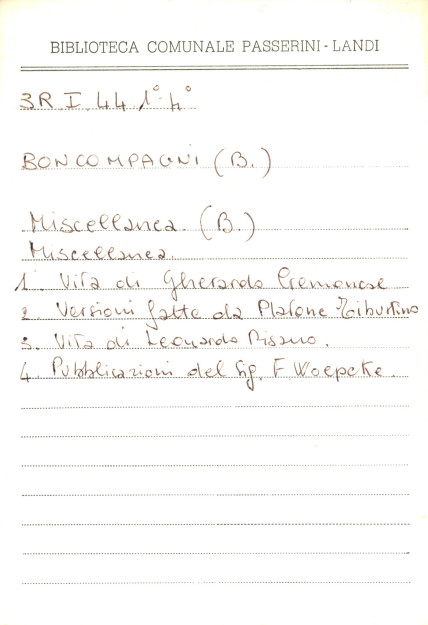 BIBLIOTECA COMUNALE PASSERINI - LANDI
3R. I. 44 1°-4°
BONCOMPAGNI (B.)
Miscellanea (B.)
Miscellanea.
1. Vita di Gherardo Cremonese
2. Versioni fatte da Platone Tiburtino
3. Vita di Leonardo Pisano.
4. Pubblicazioni del Sig. F Woepcke.